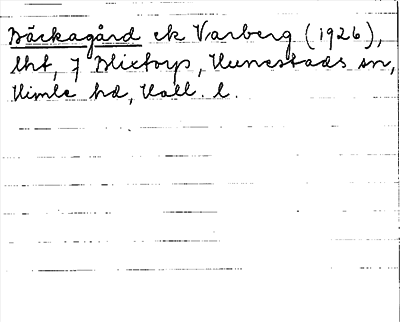 Bäckagård ek Varberg (1926),
lht, 7 Blixtorp, Hunestads sn,
Himle hd, Hall. l.